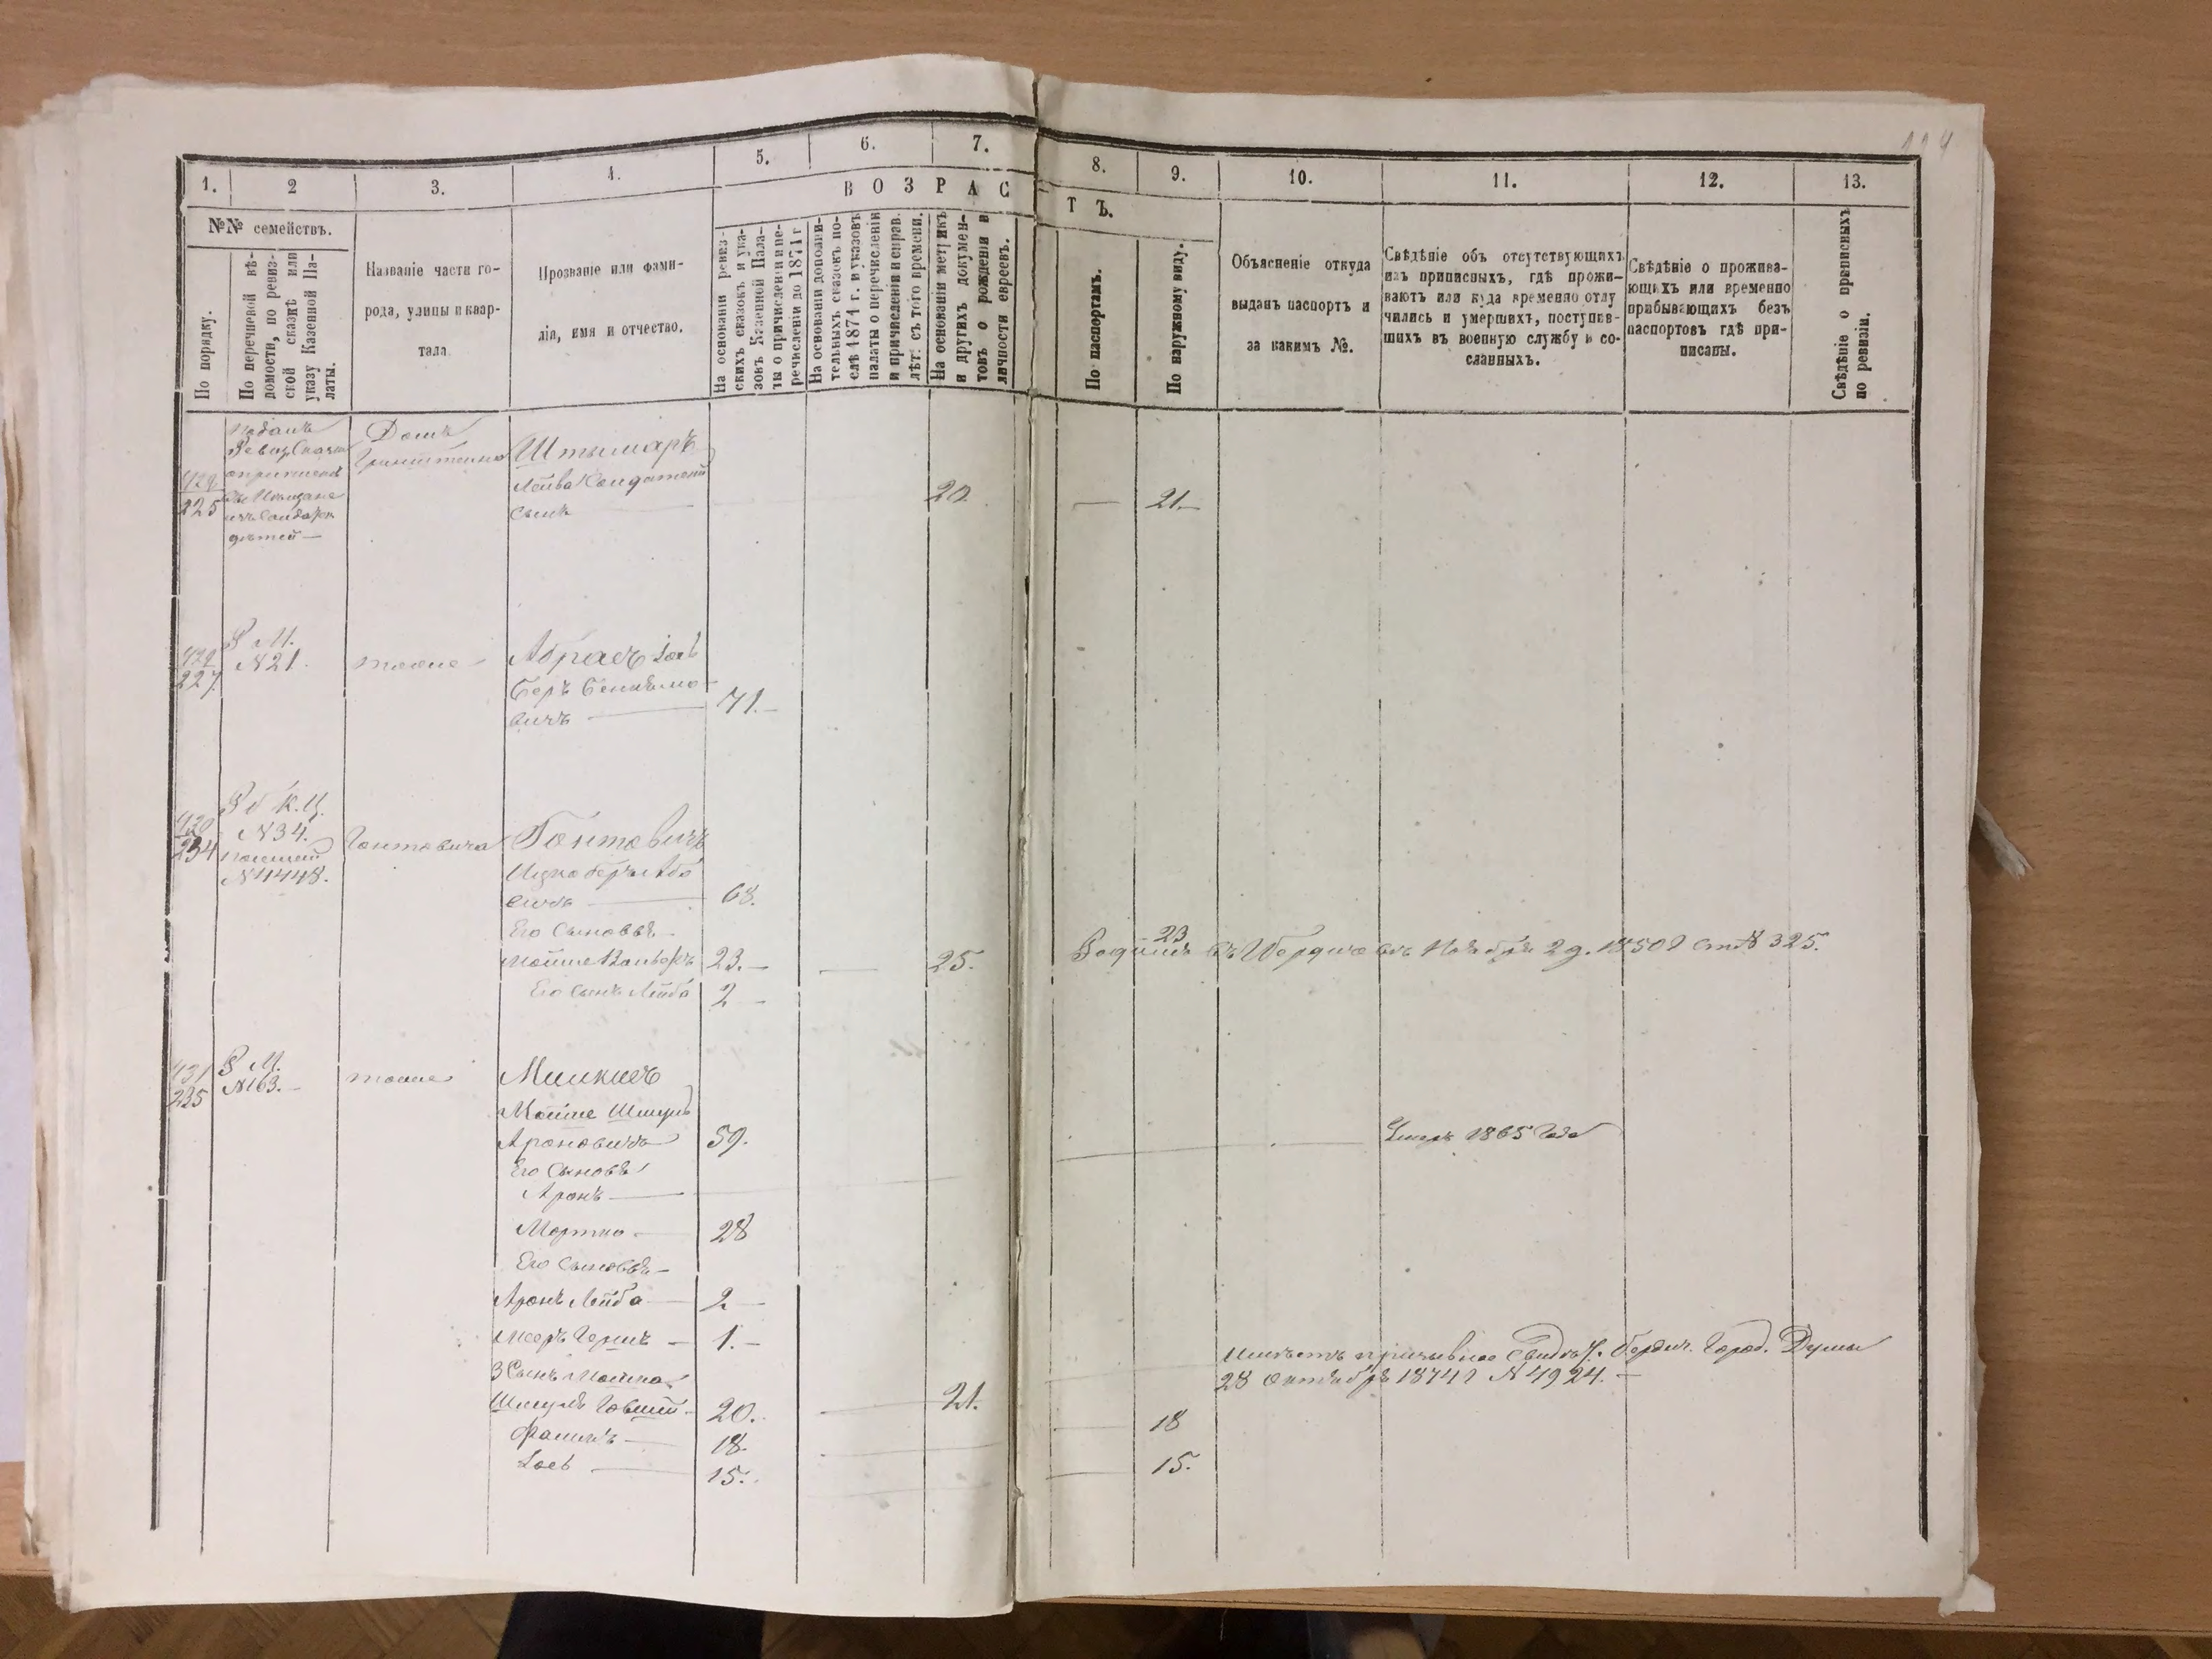 194
1.
2
3.
4.
5.
6.
7.
8.
9.
10.
11.
12.
13.
ВОЗРАС
ТЪ.
№№ семействъ.
По порядку.
По перечневой вѣ-
домости, по ревиз-
ской сказкѣ или
указу Казенной Па-
латы.
Названіе части го-
рода, улицы и квар-
тала
Прозваніе или фами-
лія, имя и отчество.
На основаніи ревиз-
скихъ сказокъ и ука-
зовъ Казенной Пала-
ты о причисленіи и пе-
речисленіи до 1874 г
На основаніи дополни-
тельныхъ сказокъ по-
слѣ 1874 г. и указовъ
палаты о перечисленіи
и причисленіи и справ.
лѣтъ съ того времени.
На основаніи метрикъ
и другихъ докумен-
товъ о рожденіи и
личности евреевъ.
По паспортамъ.
По наружному виду.
Объясненіе откуда
выданъ паспортъ и
за какимъ №.
Свѣдѣніе объ отсутствующихъ
изъ приписныхъ, гдѣ прожи-
ваютъ или куда временно отлу
чились и умершихъ, поступив-
шихъ въ военную службу и со-
сланныхъ.
Свѣдѣніе о прожива-
ющихъ или временно
прибывающихъ безъ
паспортовъ гдѣ при-
писаны.
Свѣдѣніе о приписныхъ
по ревизіи.
428
225
Домъ
Штымаръ
Лейба Солдатскій
сынъ
дѣтей —
20.
— 21. —
429
227
М.
N 21.
тоже
Іось
Беръ Беньямо-
вичъ — 71. —
430
234
К. Ц.
N 34.
N 4448.
Гонтовича
Гонтовичъ
Ицко беръ Або
вичъ — 68.
Его Сыновья —
Мойше Вольфъ 23. — — 25.
23
Родился въ Бердичевѣ Ноября 29. 1850 г ст N 325.
Его Сынъ Лейба 2 —
431
235
М.
N 163. —
тоже
Мошко Шмуль
Ароновичъ 59.
— Умеръ 1865 года
Его Сыновья
Аронъ —
Мортко — 28
Его Сыновья —
Аронъ Лейба — 2 —
Меръ Гершъ — 1. —
Имѣетъ призывное Свид. Бердич. Город. Думы
28 октября 1874 г N 4924. —
3 Сынъ Мошка
Шмуль Говшій — 20. — 21.
18. — 18
Іось — 15. — 15.